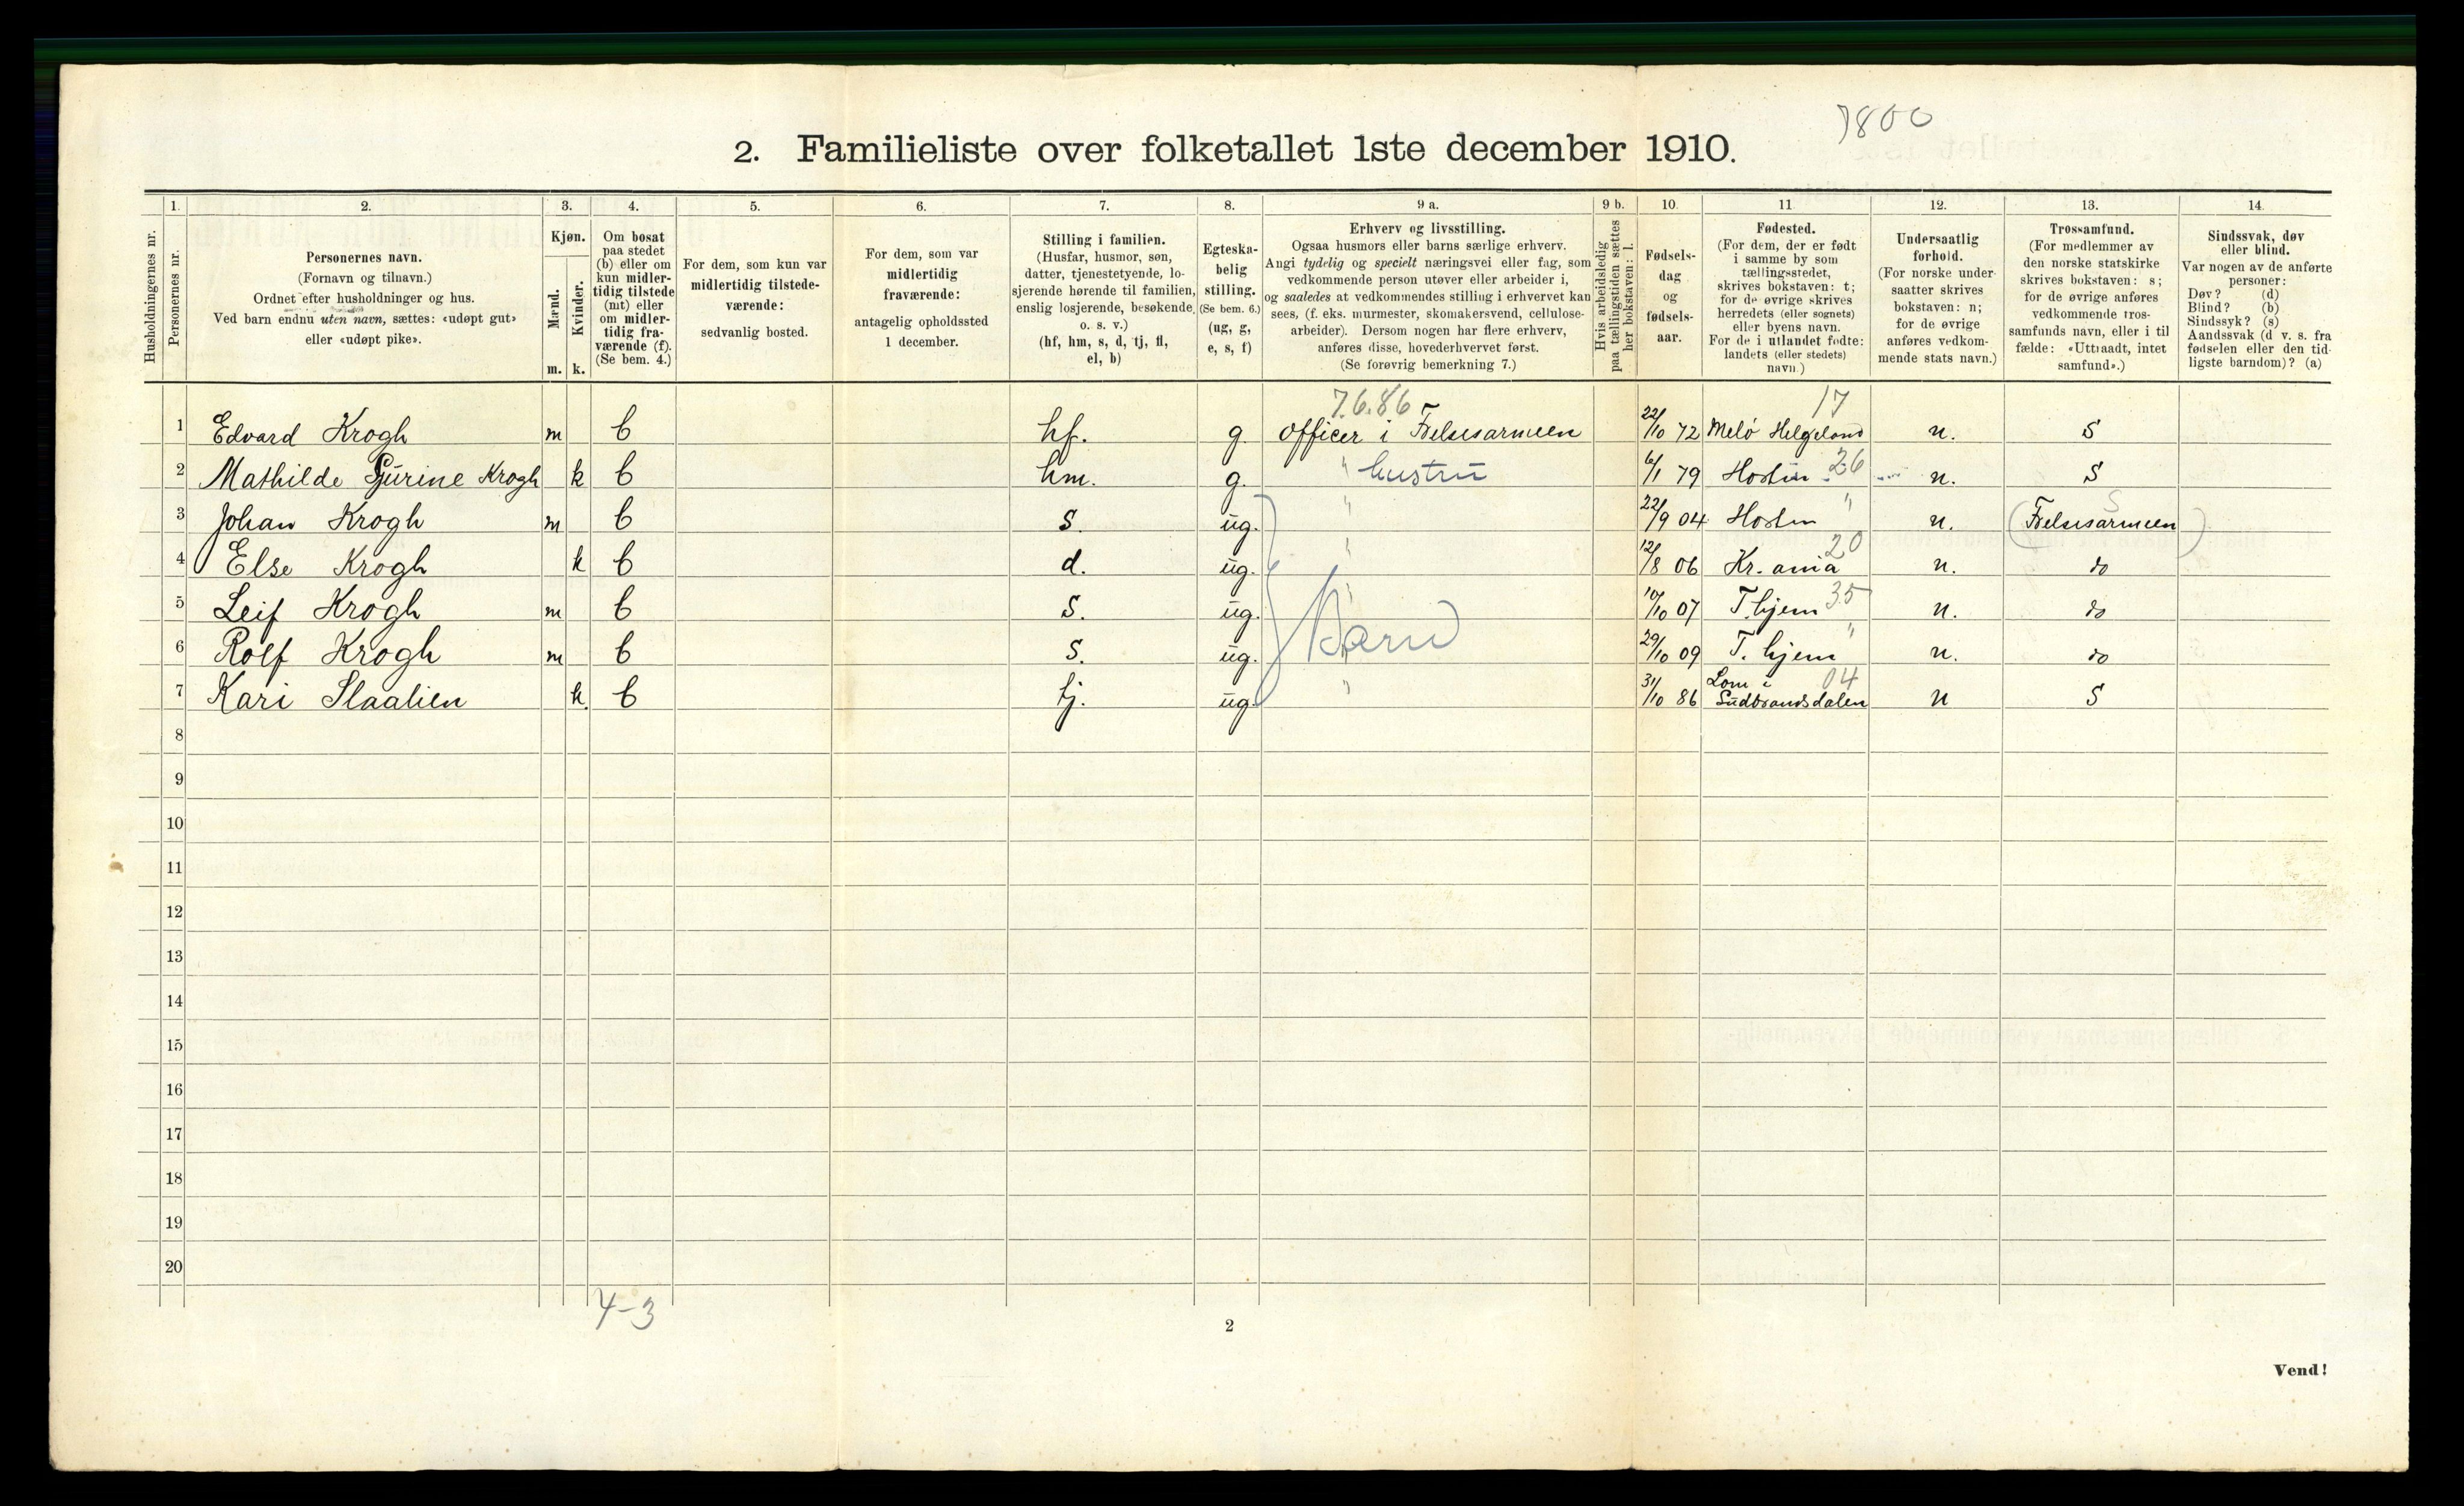 7800
2. Familieliste over folketallet 1ste december 1910.
Husholdningernes nr.
1. Personernes nr.
2. Personernes navn.
(Fornavn og tilnavn.)
Ordnet efter husholdninger og hus.
Ved barn endnu uten navn, sættes: «udøpt gut»
eller «udøpt pike».
3. Kjøn.
Mænd. m.
Kvinder. k.
4. Om bosat
paa stedet
(b) eller om
kun midler-
tidig tilstede
(mt) eller
om midler-
tidig fra-
værende (f).
(Se bem. 4.)
5. For dem, som kun var
midlertidig tilstede-
værende:
sedvanlig bosted.
6. For dem, som var
midlertidig
fraværende:
antagelig opholdssted
1 december.
7. Stilling i familien.
(Husfar, husmor, søn,
datter, tjenestetyende, lo-
sjerende hørende til familien,
enslig losjerende, besøkende
o. s. v.)
(hf, hm, s, d, tj, fl,
el, b)
8. Egteska-
belig
stilling.
(Se bem. 6.)
(ug, g,
e, s, f)
9 a. Erhverv og livsstilling.
Ogsaa husmors eller barns særlige erhverv.
Angi tydelig og specielt næringsvei eller fag, som
vedkommende person utøver eller arbeider i,
og saaledes at vedkommendes stilling i erhvervet kan
sees, (f. eks. murmester, skomakersvend, cellulose-
arbeider). Dersom nogen har flere erhverv,
anføres disse, hovederhvervet først.
(Se forøvrig bemerkning 7.)
9 b. Hvis arbeidsledig
paa tællingstiden sættes
her bokstaven: l.
10. Fødsels-
dag
og
fødsels-
aar.
11. Fødested.
(For dem, der er født
i samme by som
tællingsstedet,
skrives bokstaven: t;
for de øvrige skrives
herredets (eller sognets)
eller byens navn.
For de i utlandet fødte:
landets (eller stedets)
navn.)
12. Undersaatlig
forhold.
(For norske under-
saatter skrives
bokstaven: n;
for de øvrige
anføres vedkom-
mende stats navn.)
13. Trossamfund.
(For medlemmer av
den norske statskirke
skrives bokstaven: s;
for de øvrige anføres
vedkommende tros-
samfunds navn, eller i til
fælde: «Uttraadt, intet
samfund».)
14. Sindssvak, døv
eller blind.
Var nogen av de anførte
personer:
Døv? (d)
Blind? (b)
Sindssyk? (s)
Aandssvak (d v. s. fra
fødselen eller den tid-
ligste barndom)? (a)
7.6.86 17
1 Edvard Krogh m b hf. g officer i Frelsesarmeen 22/10 72 Melö Helgeland n. S
2 Mathilde Gurine Krogh k b hm. g. " hustru 6/1 79 26 n. S
3 Johan Krogh m b s. ug. " 22/9 04 " n. (Frelsesarmeen) S
4 Else Krogh k b d. ug. " 12/8 06 Kr.ania 20 n. do
5 Leif Krogh m b s. ug. " 10/10 07 T.hjem 35 n. do
Barn
6 Rolf Krogh m b s. ug. " 29/10 09 T. hjem " n. do
7 Kari Slaalien k. b tj. ug. " 31/10 86 Lom i Gudbrandsdalen 04 n S
8
9
10
11
12
13
14
15
16
17
18
19
20
4-3
2
Vend!